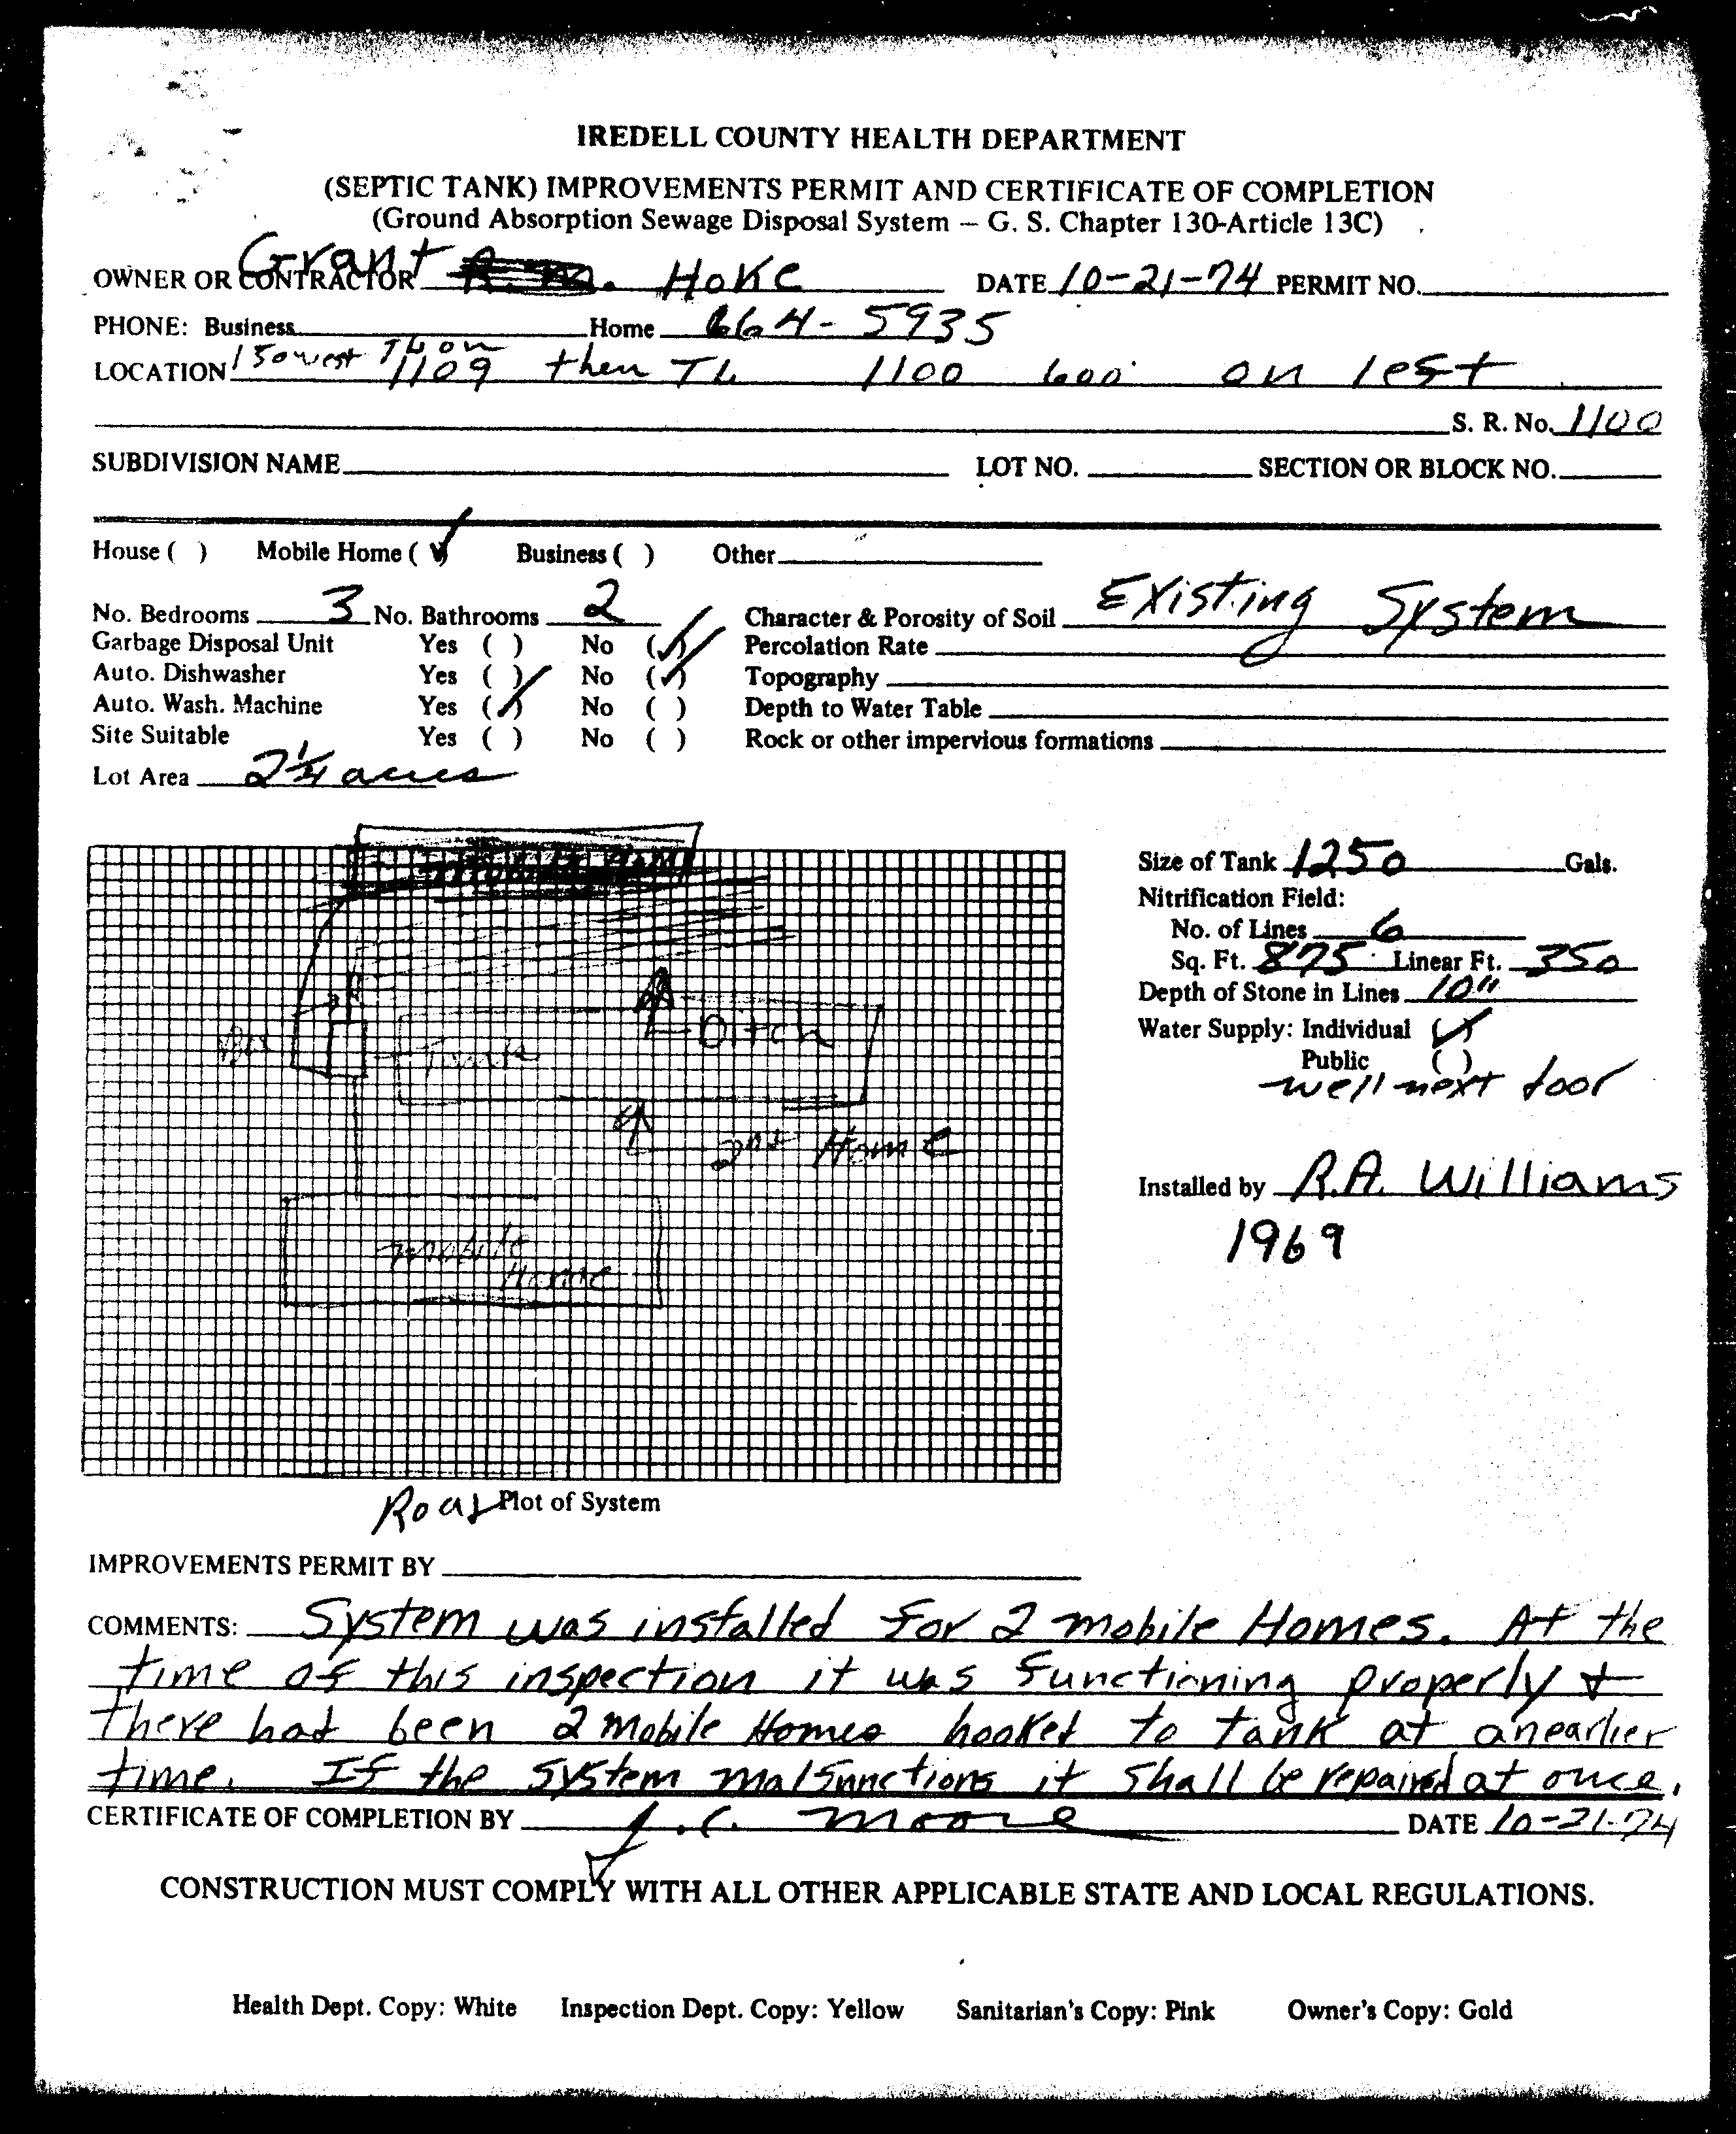 IREDELL COUNTY HEALTH DEPARTMENT
(SEPTIC TANK) IMPROVEMENTS PERMIT AND CERTIFICATE OF COMPLETION
(Ground Absorption Sewage Disposal System – G. S. Chapter 130-Article 13C)
OWNER OR CONTRACTOR Grant Hoke DATE 10-21-74 PERMIT NO.
PHONE: Business Home 664-5935
LOCATION 150 west TL on 1109 then TL 1100 600' on left
S. R. No. 1100
SUBDIVISION NAME LOT NO. SECTION OR BLOCK NO.
House ( ) Mobile Home (✓) Business ( ) Other
No. Bedrooms 3 No. Bathrooms 2 Character & Porosity of Soil Existing System
Garbage Disposal Unit Yes ( ) No (✓) Percolation Rate
Auto. Dishwasher Yes ( ) No (✓) Topography
Auto. Wash. Machine Yes (✓) No ( ) Depth to Water Table
Site Suitable Yes ( ) No ( ) Rock or other impervious formations
Lot Area 2 1/4 acres
Size of Tank 1250 Gals.
Nitrification Field:
No. of Lines 6
Sq. Ft. 875 Linear Ft. 350
Depth of Stone in Lines 10"
Water Supply: Individual (✓)
Public ( )
well next door
Installed by R.A. Williams
1969
Ditch
Tank
2nd Home
mobile
Home
Road Plot of System
IMPROVEMENTS PERMIT BY
COMMENTS: System was installed for 2 mobile Homes. At the
time of this inspection it was functioning properly &
there had been 2 mobile Homes hooked to tank at an earlier
time. If the system malfunctions it shall be repaired at once.
CERTIFICATE OF COMPLETION BY J.C. Moore DATE 10-21-74
CONSTRUCTION MUST COMPLY WITH ALL OTHER APPLICABLE STATE AND LOCAL REGULATIONS.
Health Dept. Copy: White Inspection Dept. Copy: Yellow Sanitarian's Copy: Pink Owner's Copy: Gold